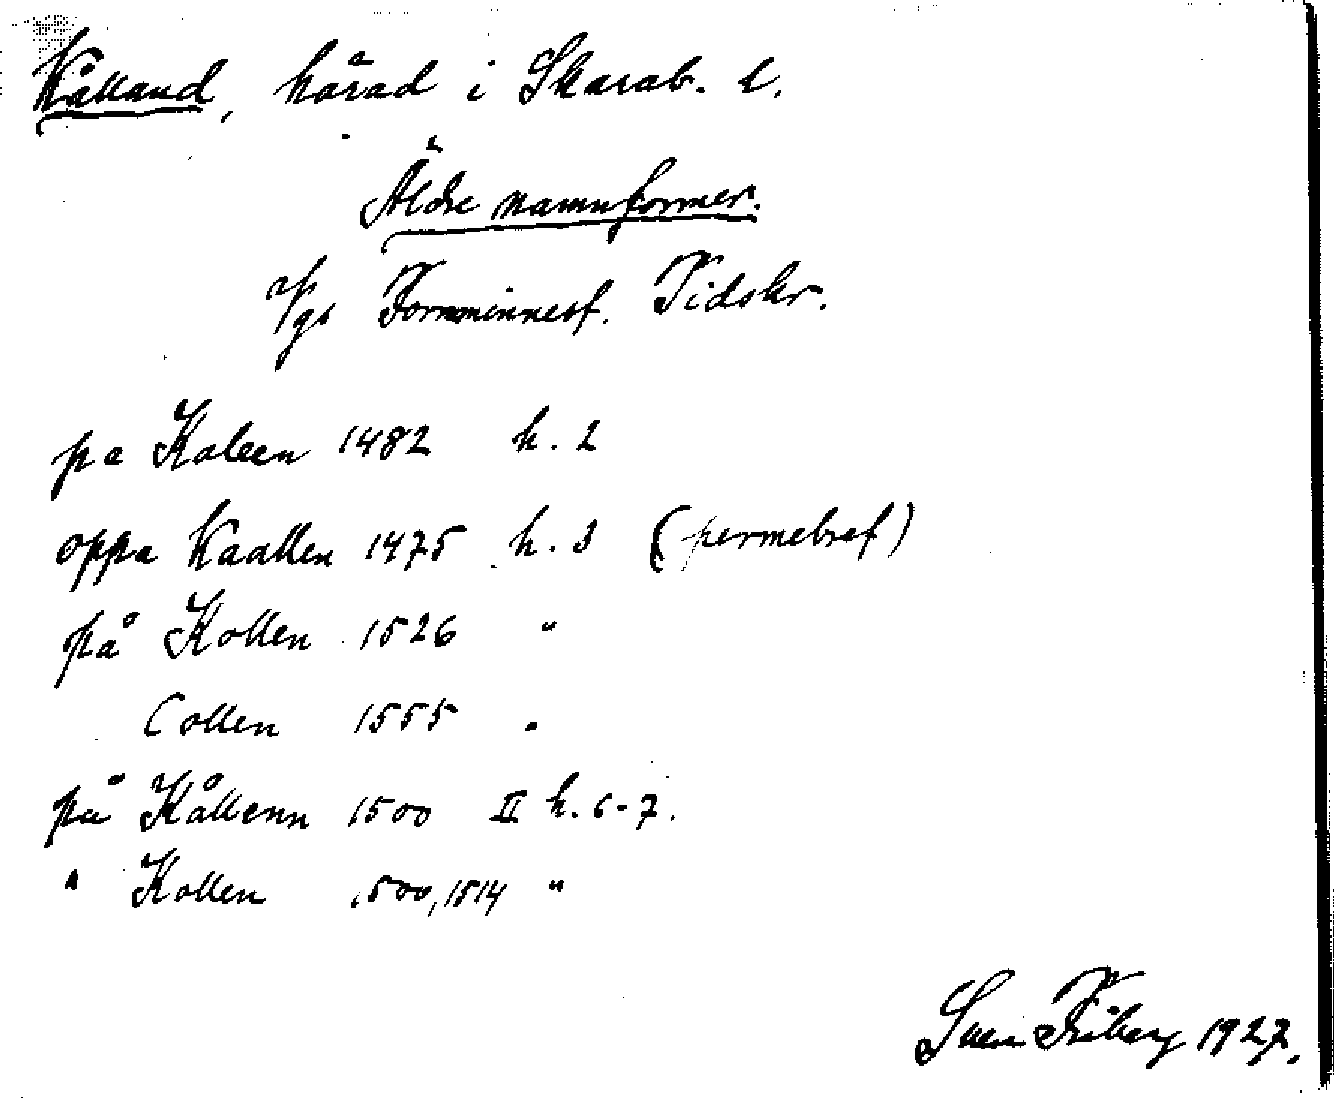 Kålland, härad i Skarab. l.
Äldre namnformer.
V/gs Fornminnesf. Tidskr.
pa Koleen 1482 h. 2
oppa Kaallen 1475 h. 3 (permebref)
på Kollen 1526 "
Collen 1555 "
på Kållenn 1500 II h. 6-7.
" Kollen 1500, 1514 "
Sven Friberg 1927.